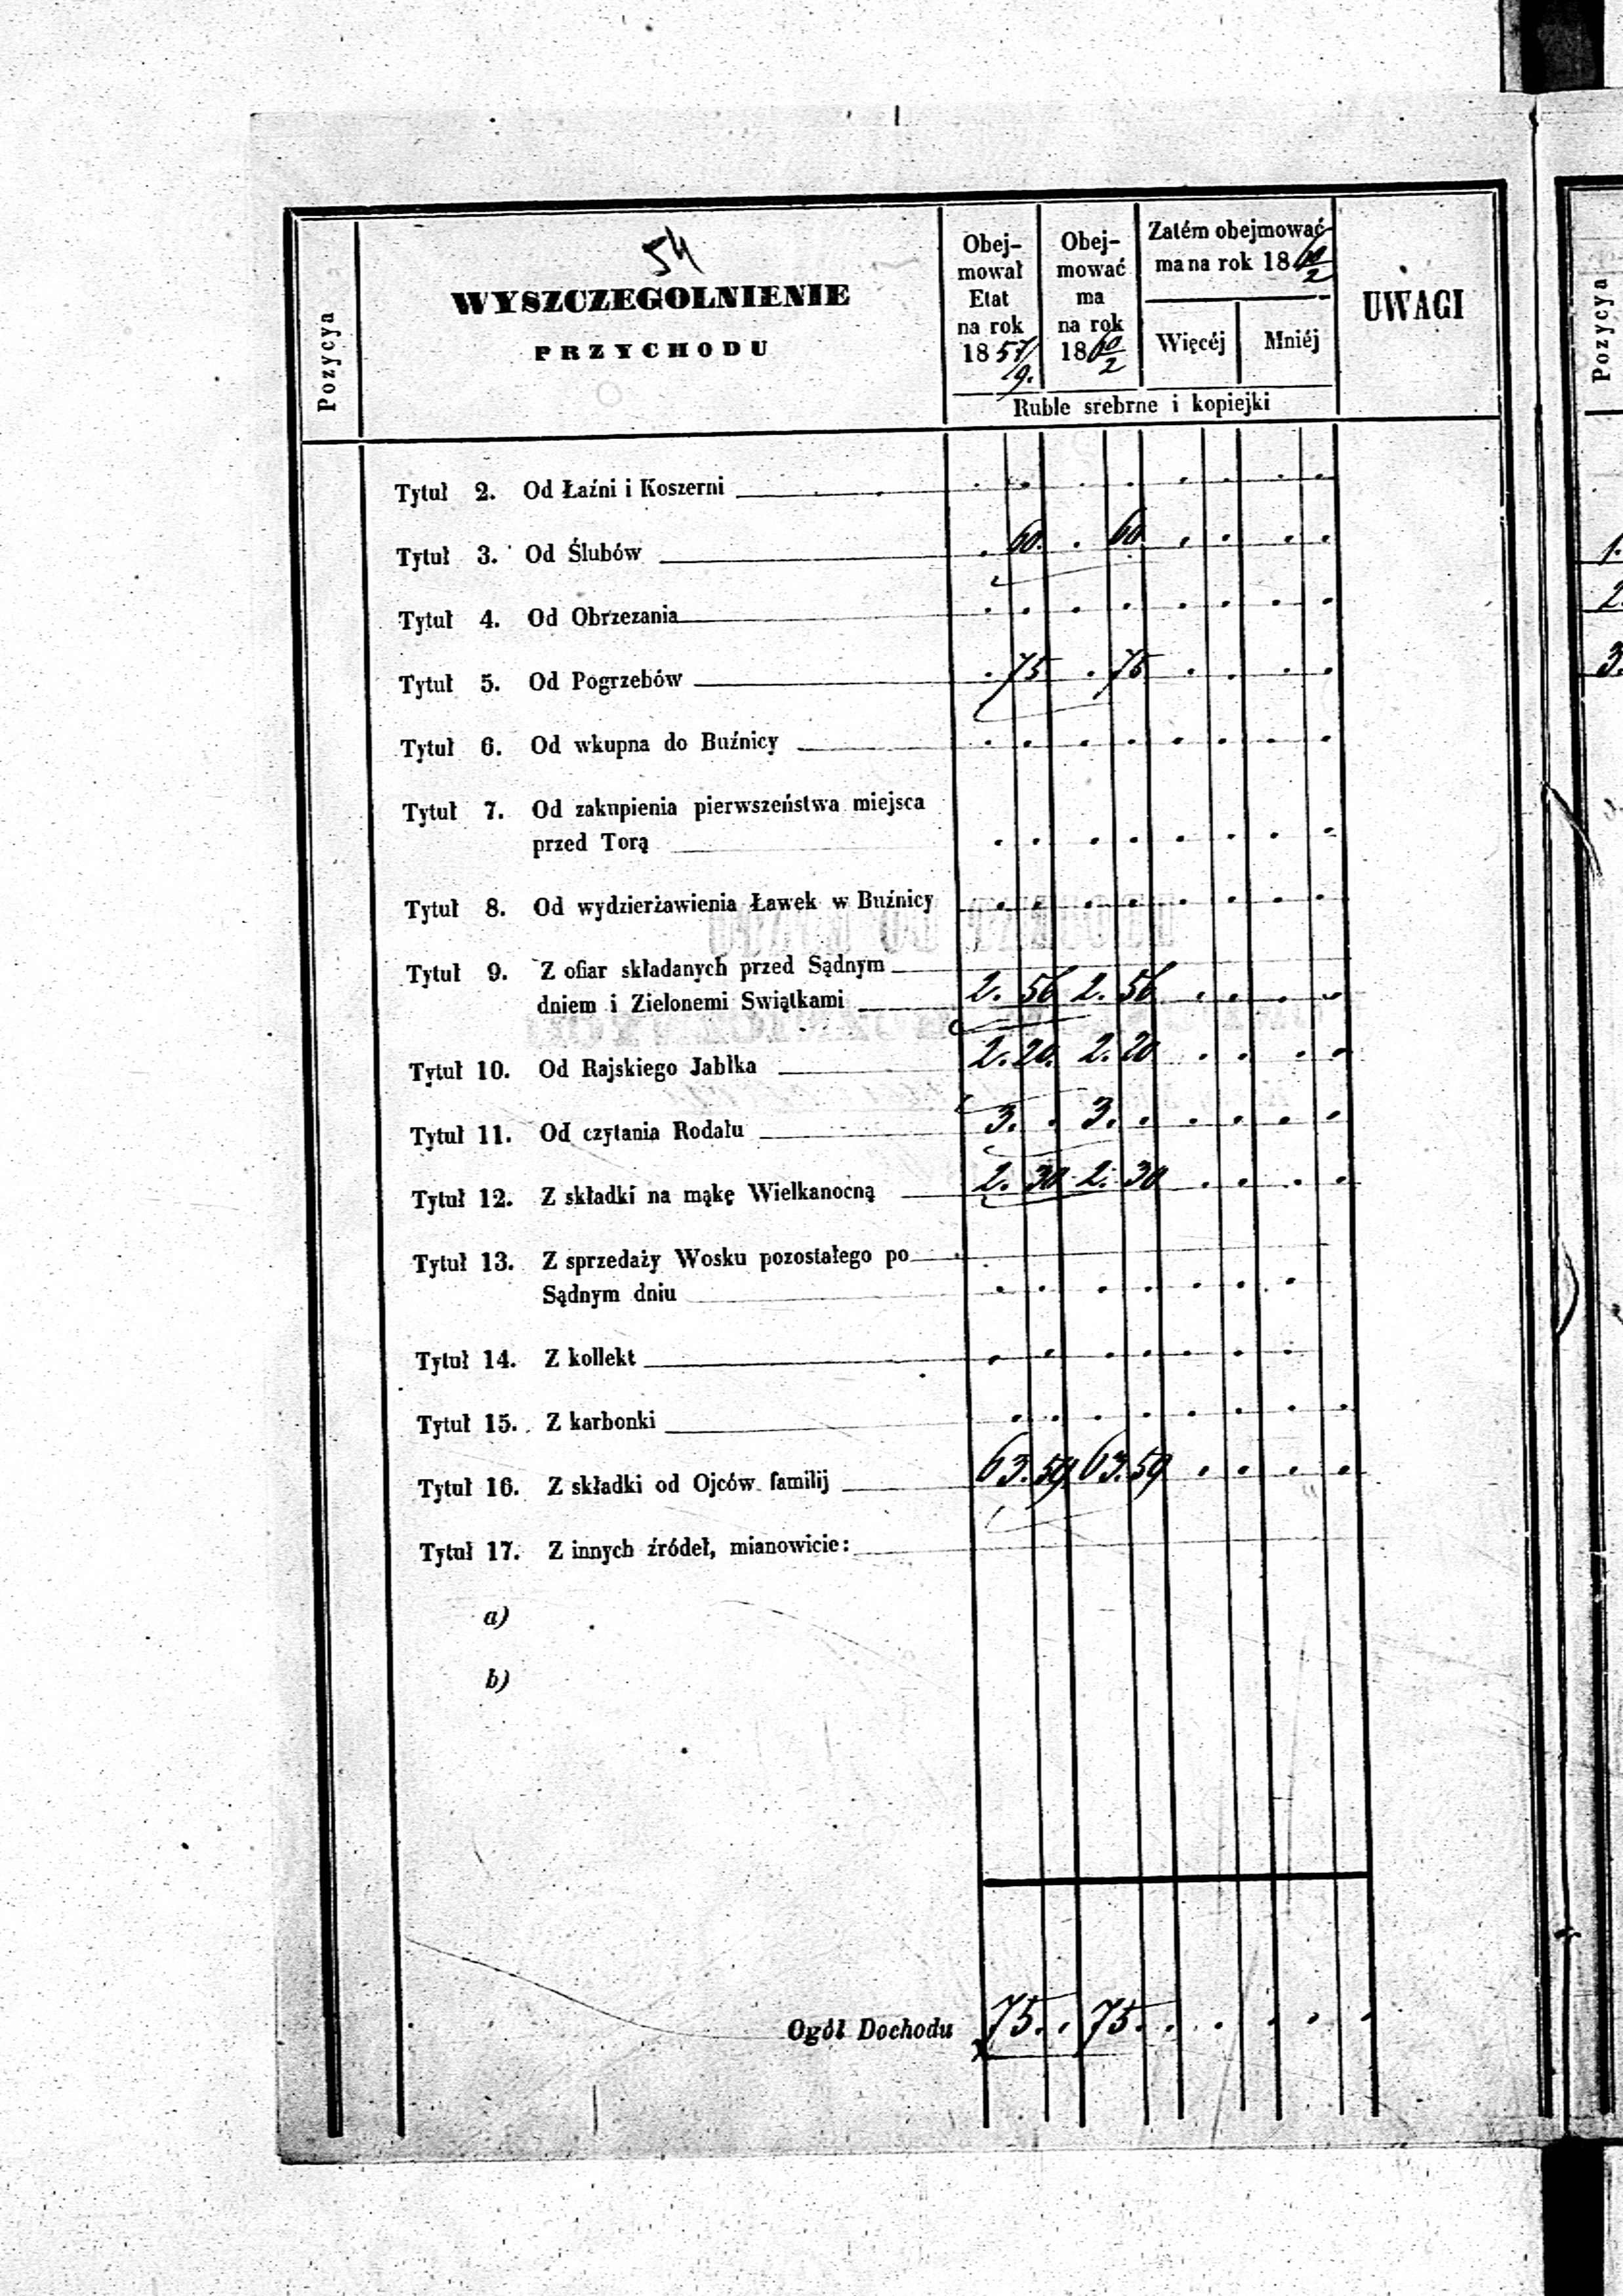 54
Pozycya
WYSZCZEGOLNIENIE
PRZYCHODU
Obej-
mował
Etat
na rok
18 57/9.
Obej-
mować
ma
na rok
18 60/2
Zatém obejmować
ma na rok 18 60/2
Więcéj
Mniéj
Ruble srebrne i kopiejki
UWAGI
Pozycya
Tytuł 2. Od Łaźni i Koszerni . . . . . . . .
Tytuł 3. Od Ślubów . 60. . 60. . . . .
Tytuł 4. Od Obrzezania . . . . . . . .
Tytuł 5. Od Pogrzebów . 75 . 75 . . . .
Tytuł 6. Od wkupna do Buźnicy . . . . . . . .
Tytuł 7. Od zakupienia pierwszeństwa miejsca
przed Torą . . . . . . . .
Tytuł 8. Od wydzierżawienia Ławek w Buźnicy . . . . . . . .
Tytuł 9. Z ofiar składanych przed Sądnym
dniem i Zielonemi Swiątkami 2. 56 2. 56 . . . .
Tytuł 10. Od Rajskiego Jabłka 2. 20. 2. 20 . . . .
Tytuł 11. Od czytania Rodału 3. . 3. . . . . .
Tytuł 12. Z składki na mąkę Wielkanocną 2. 30 2. 30 . . . .
Tytuł 13. Z sprzedaży Wosku pozostałego po
Sądnym dniu . . . . . . .
Tytuł 14. Z kollekt . . . . . . .
Tytuł 15. Z karbonki . . . . . . . .
Tytuł 16. Z składki od Ojców familij 63. 59 63. 59 . . . .
Tytuł 17. Z innych źródeł, mianowicie:
a)
b)
Ogół Dochodu 75. . 75. . . . . .
1.
2.
3.